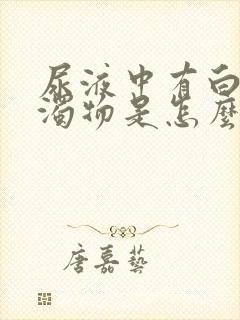 尿液中有白
濁物是怎麼
唐嘉藝